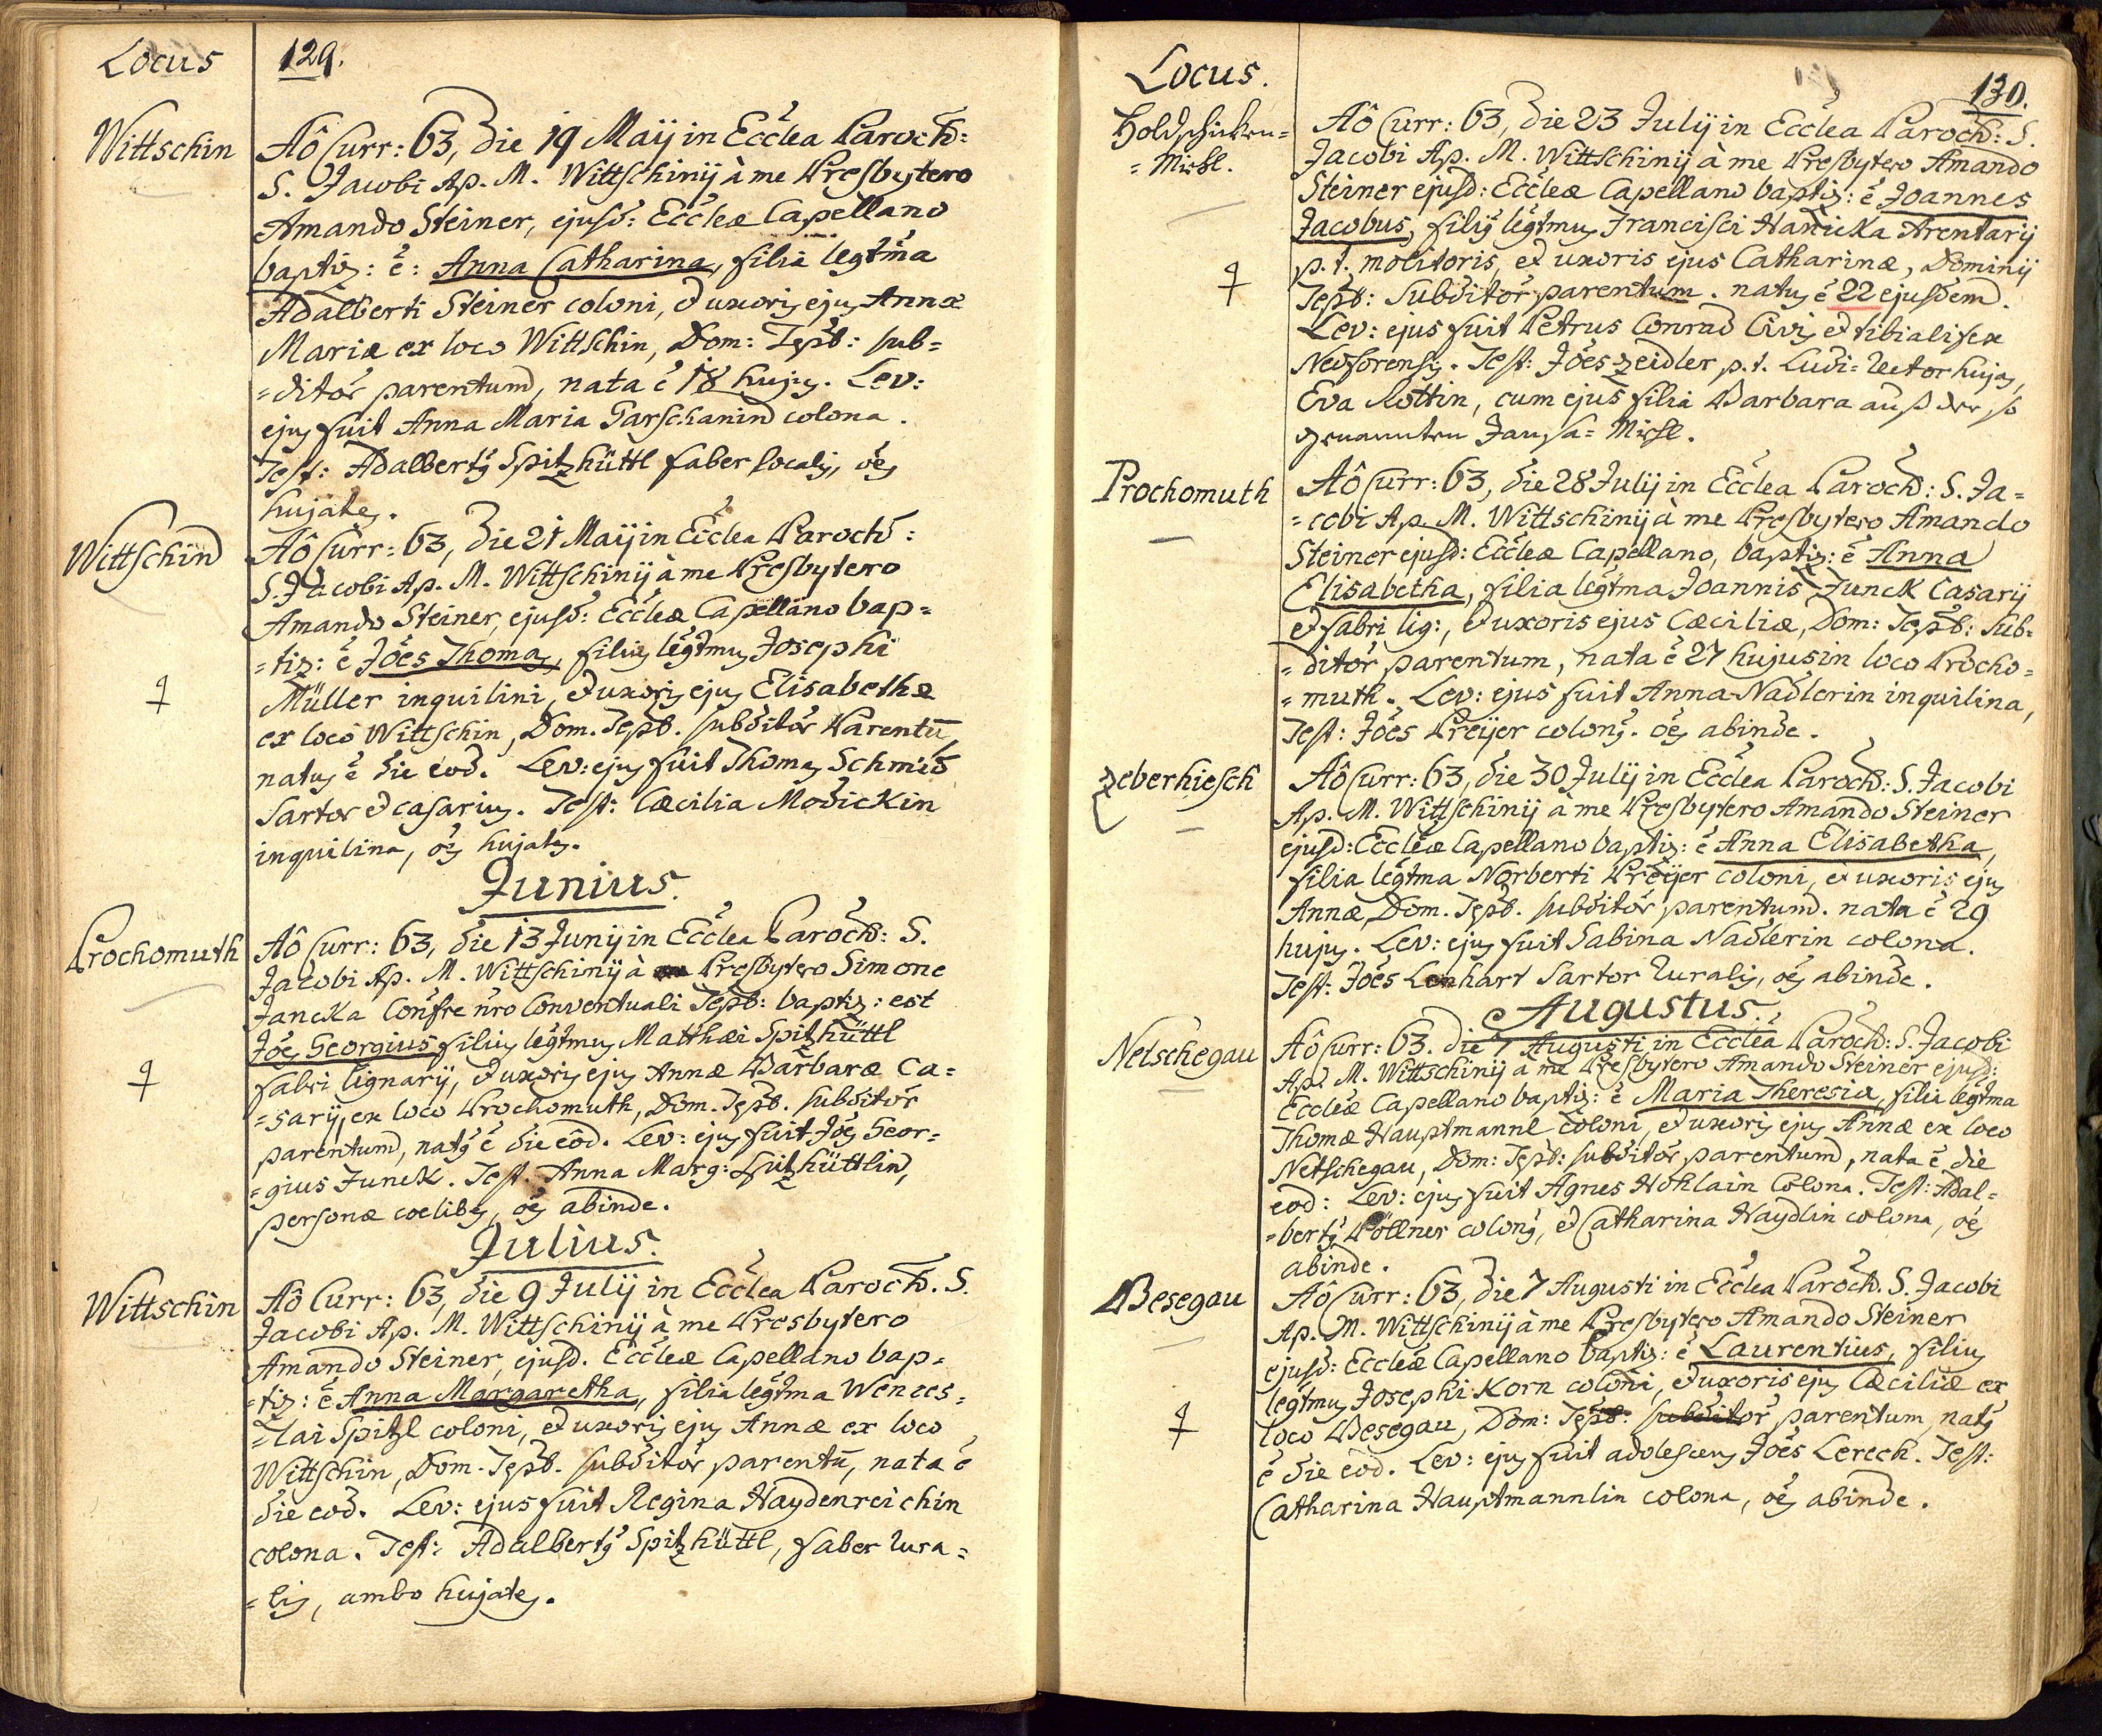 Locus
129.
Wittschin
Aô Curr: 63, die 19 Maÿ in Ecclea Paroch:
S. Jacobi Ap. M. Wittschinÿ à me Presbytero
Amando Steiner, ejusd: Eccleæ Capellano
baptiz: ē: Anna Catharina, filia legtma
Adalberti Steiner coloni, et uxoris ejus Annæ
Mariæ ex loco Wittschin, Dom: Tepb: sub=
=ditor parentum, nata ē 18 hujus. Lev:
ejus fuit Anna Maria Tarschanin colona.
Test: Adalbertus Spitzhüttl faber localis, oēs
hujates.
Wittschin
Aô Curr: 63, die 21 Maÿ in Ecclea Paroch:
S. Jacobi Ap. M. Wittschinÿ à me Presbytero
Amando Steiner, ejusd: Eccleæ Capellano bap=
=tiz: ē Joēs Thomas, filius legtmus Josephi
Müller inquilini, et uxoris ejus Elisabethæ
ex loco Wittschin, Dom. Tepb. subditor Parentū,
natus ē die eod. Lev: ejus fuit Thomas Schmid
Sartor et casarius. Test: Cæcilia Modickin
inquilina, oēs hujates.
Junius.
Prochomuth
Aô Curr: 63, die 13 Junÿ in Ecclea Paroch: S.
Jacobi Ap. M. Wittschinÿ à Presbytero Simone
Jancka Confre nro Conventuali Tepb: baptiz: est
Joēs Georgius filius legtmus Matthæi Spitzhüttl
fabri lignarÿ, et uxoris ejus Annæ Barbaræ Ca=
=sarÿ, ex loco Prochomuth, Dom. Tepb. subditor
parentum, natus ē die eod. Lev: ejus fuit Joēs Geor=
=gius Junck. Test. Anna Marg: Spitzhüttlin,
personæ coelibes, oēs abinde.
Julius.
Wittschin
Aô Curr: 63, die 9 Julÿ in Ecclea Paroch. S.
Jacobi Ap. M. Wittschinÿ à me Presbytero
Amando Steiner, ejusd. Eccleæ Capellano bap=
=tiz: ē Anna Margaretha, filia legtma Wences=
=lai Spitzl coloni, et uxoris ejus Annæ ex loco
Wittschin, Dom. Tepb. subditor parentū, nata ē
die eod. Lev: ejus fuit Regina Haydenreichin
colona. Test: Adalbertus Spitzhüttl, faber rura=
=lis, ambo hujates.
Locus.
130.
Holdschicken=
=Michl.
Aô Curr: 63, die 23 Julÿ in Ecclea Paroch: S.
Jacobi Ap. M. Wittschinÿ à me Presbytero Amando
Steiner ejusd: Eccleæ Capellano baptiz: ē Joannes
Jacobus, filius legtmus Francisci Hanicka Arentarÿ
p. t. molitoris, et uxoris ejus Catharinæ, Dominÿ
Tepb: Subditor parentum. natus ē 22 ejusdem.
Lev: ejus fuit Petrus Conrad Civis et tibialifex
Neoforensis. Test: Joēs Zeidler p. t. Ludi=Rector hujas,
Eva Rottin, cum ejus filia Barbara auß der so
genannten Jansa=Michl.
Prochomuth
Aô Curr: 63, die 28 Julÿ in Ecclea Paroch: S. Ja=
=cobi Ap. M. Wittschinÿ à me Presbytero Amando
Steiner ejusd: Eccleæ Capellano, baptiz: ē Anna
Elisabetha, filia legtma Joannis Junck Casarÿ
et fabri lig:, et uxoris ejus Cæciliæ, Dom: Tepb: sub=
=ditor parentum, nata ē 27 hujus in loco Procho=
=muth. Lev: ejus fuit Anna Nadlerin inquilina,
Test: Joēs Preÿer colonus. oēs abinde.
Zeberhiesch
Aô Curr: 63, die 30 Julÿ in Ecclea Paroch: S. Jacobi
Ap. M. Wittschinÿ à me Presbytero Amando Steiner
ejusd: Eccleæ Capellano baptiz: ē Anna Elisabetha,
filia legtma Norberti Preÿer coloni, et uxoris ejus
Annæ, Dom. Tepb. subditor parentum. nata ē 29
hujus. Lev: ejus fuit Sabina Nadlerin colona.
Test: Joēs Lenhart Sartor ruralis, oēs abinde.
Augustus.
Netschegau
Aô Curr: 63. die 7 Augusti in Ecclea Paroch: S. Jacobi
Ap. M. Wittschinÿ à me Presbytero Amando Steiner ejusd:
Eccleæ Capellano baptiz: ē Maria Theresia, filia legtma
Thomæ Hauptmannl coloni, et uxoris ejus Annæ ex loco
Netschegau, Dom: Tepb: subditor parentum, nata ē die
eod: Lev: ejus fuit Agnes Hohlain Colona. Test: Adal=
=bertus Pöllner colonus, et Catharina Haydlin colona, oēs
abinde.
Besegau
Aô Curr: 63, die 7 Augusti in Ecclea Paroch. S. Jacobi
Ap. M. Wittschinÿ à me Presbytero Amando Steiner
ejusd: Eccleæ Capellano baptiz: ē Laurentius, filius
legtmus Josephi Korn coloni, et uxoris ejus Cæciliæ ex
loco Besegau, Dom: Tepb: subditor parentum, natus
ē die eod. Lev: ejus fuit adolescens Joēs Lerech. Test:
Catharina Hauptmannlin colona, oēs abinde.